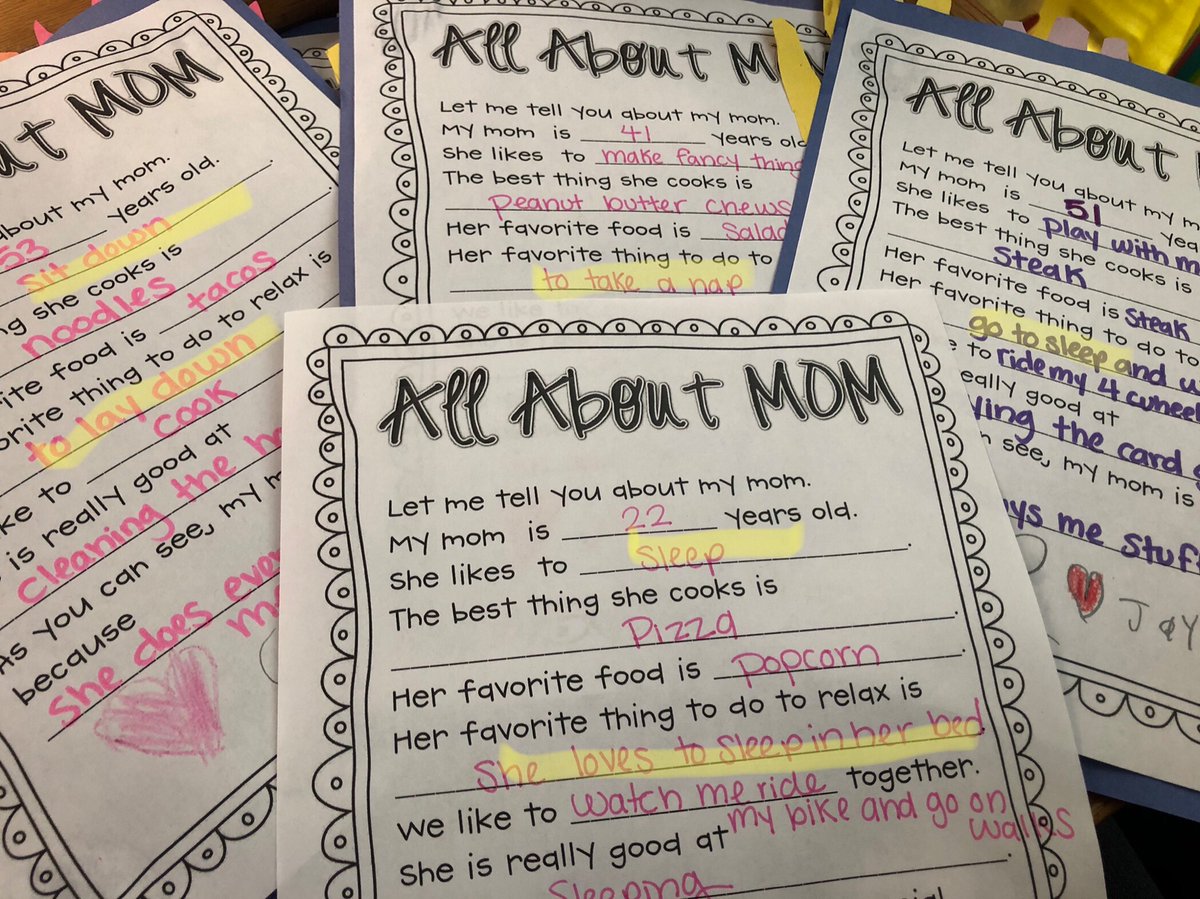 MOM
about my mom.
53 years old.
sit down
she cooks is
noodles
food is tacos
thing to do to relax is
to lay down
to cook
is really good at
Cleaning the
As you can see, my
because
She does
All About
Let me tell you about my mom.
My mom is 41 years
She likes to make fancy thing
The best thing she cooks is
peanut butter chews
Her favorite food is Salad
Her favorite thing to do to
to take a nap
we like to
All About
Let me tell you about my
My mom is 51
She likes to play with
The best thing she cooks is
Steak
Her favorite food is Steak
Her favorite thing to do to
go to sleep and
to ride my 4 wheel
really good at
the card
see, my mom is
me stuff
JOY
All About MOM
Let me tell you about my mom.
My mom is 22 years old.
She likes to Sleep.
The best thing she cooks is
Pizza.
Her favorite food is popcorn.
Her favorite thing to do to relax is
She loves to sleep in her bed.
we like to watch me ride together.
my bike and go on walks
She is really good at
Sleeping.